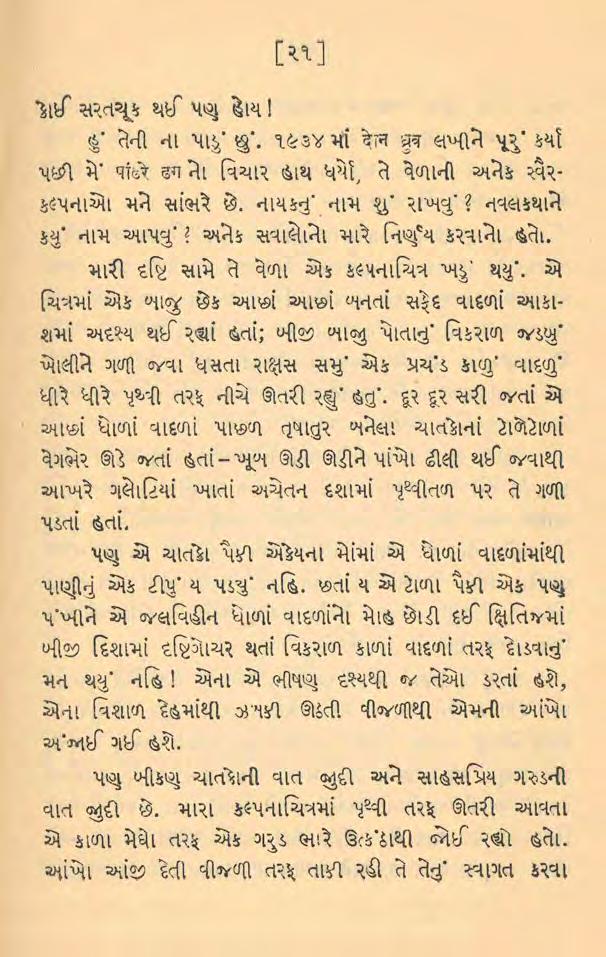 [૨૧]
કાેઈ સરતચૂક થઈ પણ હાેય!
હું તેની ના પાડું છું. ૧૯૩૪ માં दोन ध्रुव લખીને પૂરું કર્યા
પછી મેં पांढरे ढग નાે વિચાર હાથ ધર્યાે, તે વેળાની અનેક સ્વૈર-
કલ્પનાઓ મને સાંભરે છે. નાયકનું નામ શું રાખવું? નવલકથાને
કયું નામ આપવું? અનેક સવાલાેનાે મારે નિર્ણય કરવાનાે હતાે.
મારી દૃષ્ટિ સામે તે વેળા એક કલ્પનાચિત્ર ખડું થયું. એ
ચિત્રમાં એક બાજુ છેક આછાં આછાં બનતાં સફેદ વાદળાં આકા-
શમાં અદૃશ્ય થઈ રહ્યાં હતાં; બીજી બાજુ પાેતાનું વિકરાળ જડબું
ખાેલીને ગળી જવા ધસતા રાક્ષસ સમું એક પ્રચંડ કાળું વાદળું
ધીરે ધીરે પૃથ્વી તરફ નીચે ઊતરી રહ્યું હતું. દૂર દૂર સરી જતાં એ
આછાં ધાેળાં વાદળાં પાછળ તૃષાતુર બનેલા ચાતકાેનાં ટાેળેટાેળાં
વેગભેર ઊડે જતાં હતાં–ખૂબ ઊડી ઊડીને પાંખાે ઢીલી થઈ જવાથી
આખરે ગલાેટિયાં ખાતાં અચેતન દશામાં પૃથ્વીતળ પર તે ગળી
પડતાં હતાં.
પણ એ ચાતકાે પૈકી એકેયના માેંમાં એ ધાેળાં વાદળાંમાંથી
પાણીનું એક ટીપું ય પડયું નહિ. છતાં ય એ ટાેળા પૈકી એક પણ
પંખીને એ જલવિહીન ધાેળાં વાદળાંનાે માેહ છાેડી દઈ ક્ષિતિજમાં
બીજી દિશામાં દૃષ્ટિગાેચર થતાં વિકરાળ કાળાં વાદળાં તરફ દાેડવાનું
મન થયું નહિ! એના એ ભીષણ દૃશ્યથી જ તેઓ ડરતાં હશે,
એના વિશાળ દેહમાંથી ઝબકી ઊઠતી વીજળીથી એમની આંખાે
અંજાઈ ગઈ હશે.
પણ બીકણ ચાતકાેની વાત જુદી અને સાહસપ્રિય ગરુડની
વાત જુદી છે. મારા કલ્પનાચિત્રમાં પૃથ્વી તરફ ઊતરી આવતા
એ કાળા મેઘાે તરફ એક ગરુડ ભારે ઉત્કંઠાથી જોઈ રહ્યો હતાે.
આંખાે આંજી દેતી વીજળી તરફ તાકી રહી તે તેનું સ્વાગત કરવા